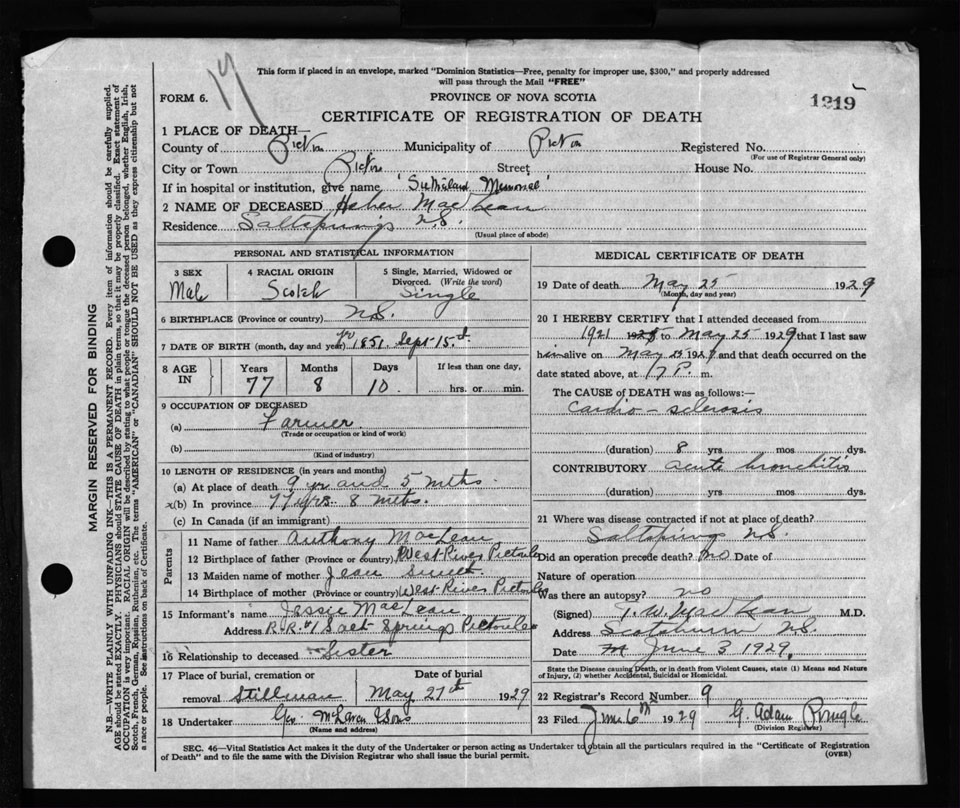 19
This form if placed in an envelope, marked "Dominion Statistics—Free, penalty for improper use, $300," and properly addressed
will pass through the Mail "FREE"
FORM 6.
PROVINCE OF NOVA SCOTIA
1219
CERTIFICATE OF REGISTRATION OF DEATH
1 PLACE OF DEATH—
County of Pictou Municipality of Pictou Registered No.
(For use of Registrar General only)
City or Town Pictou Street House No.
If in hospital or institution, give name 'Sutherland Memorial'
2 NAME OF DECEASED Heber MacLean
Residence Saltsprings N.S.
(Usual place of abode)
PERSONAL AND STATISTICAL INFORMATION
3 SEX Male
4 RACIAL ORIGIN Scotch
5 Single, Married, Widowed or Divorced. (Write the word) Single
6 BIRTHPLACE (Province or country) N.S.
7 DATE OF BIRTH (month, day and year) 1851 Sept 15
8 AGE IN Years 77 Months 8 Days 10 If less than one day, hrs. or min.
9 OCCUPATION OF DECEASED
(a) Farmer
(Trade or occupation or kind of work)
(b)
(Kind of industry)
10 LENGTH OF RESIDENCE (in years and months)
(a) At place of death 9 yr and 5 mths.
x(b) In province 77 yrs. 8 mths.
(c) In Canada (if an immigrant)
Parents
11 Name of father Anthony MacLean
12 Birthplace of father (Province or country) West River Pictou Co
13 Maiden name of mother Jean
14 Birthplace of mother (Province or country) West River Pictou Co
15 Informant's name Jessie MacLean
Address R.R.#1 Salt Springs Pictou Co
16 Relationship to deceased Sister
17 Place of burial, cremation or removal Stillman
Date of burial May 27th 1929
18 Undertaker Geo. McLaren & Sons
(Name and address)
MEDICAL CERTIFICATE OF DEATH
19 Date of death May 25 1929
(Month, day and year)
20 I HEREBY CERTIFY that I attended deceased from
1921 to May 25 1929 that I last saw
him alive on May 25 1929 and that death occurred on
the date stated above, at P. m.
The CAUSE OF DEATH was as follows:—
Cardio-sclerosis
(duration) 8 yrs mos. dys.
CONTRIBUTORY acute bronchitis
(duration) yrs mos. dys.
21 Where was disease contracted if not at place of death?
Saltsprings N.S.
Did an operation precede death? no Date of
Nature of operation
Was there an autopsy? no
(Signed) T. W. MacLean M.D.
Address Scotsburn N.S.
Date June 5 1929.
State the Disease causing Death, or in death from Violent Causes, state (1) Means and Nature
of Injury, (2) whether Accidental, Suicidal or Homicidal.
22 Registrar's Record Number 9
23 Filed June 6th 1929 G. Adam Pringle
(Division Registrar)
SEC. 46—Vital Statistics Act makes it the duty of the Undertaker or person acting as Undertaker to obtain all the particulars required in the "Certificate of Registration
of Death" and to file the same with the Division Registrar who shall issue the burial permit. (OVER)
MARGIN RESERVED FOR BINDING
N.B.—WRITE PLAINLY WITH UNFADING INK—THIS IS A PERMANENT RECORD. Every item of information should be carefully supplied.
AGE should be stated EXACTLY. PHYSICIANS should STATE CAUSE OF DEATH in plain terms, so that it may be properly classified. Exact statement of
OCCUPATION is very important. RACIAL ORIGIN will be described by stating to what people or tongue the deceased person belonged, whether English, Irish,
Scotch, French, German, Russian, Ruthenian, etc. The terms "AMERICAN" or "CANADIAN" SHOULD NOT BE USED as they express citizenship but not
a race or people. See instructions on back of Certificate.